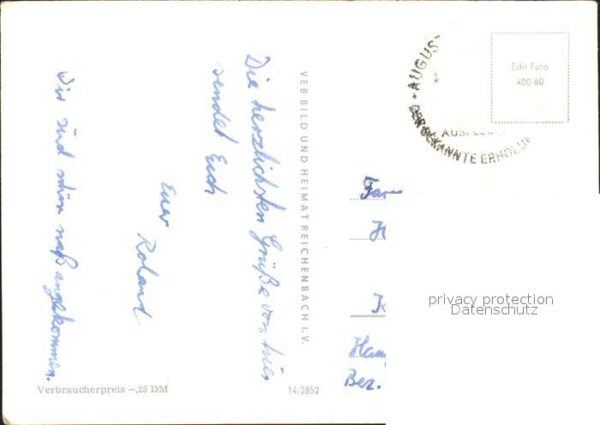 Die herzlichsten Grüße von hier
sendet Euch
Euer Roland
Wir sind schön naß angekommen.
VEB BILD UND HEIMAT REICHENBACH I. V.
Verbraucherpreis –,25 DM
14/2852
Echt Foto
400/60
AUGUS
DER BEKANNTE ERHOLUN
Fam
H
K
Bez.
privacy protection
Datenschutz